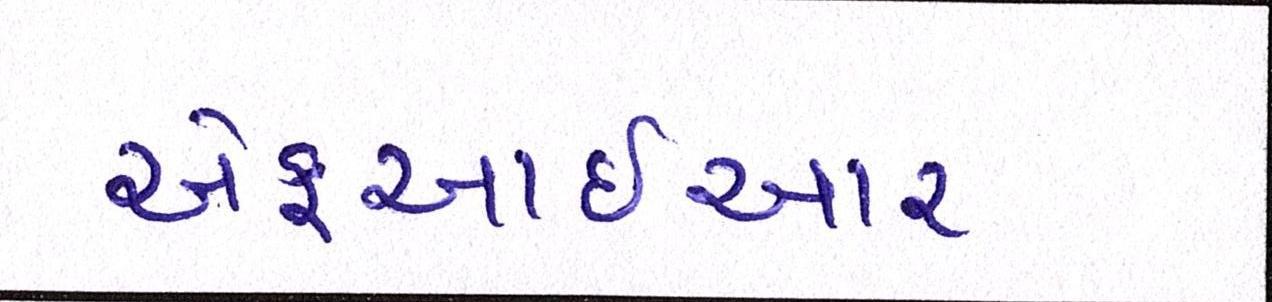 એફઆઈઆર